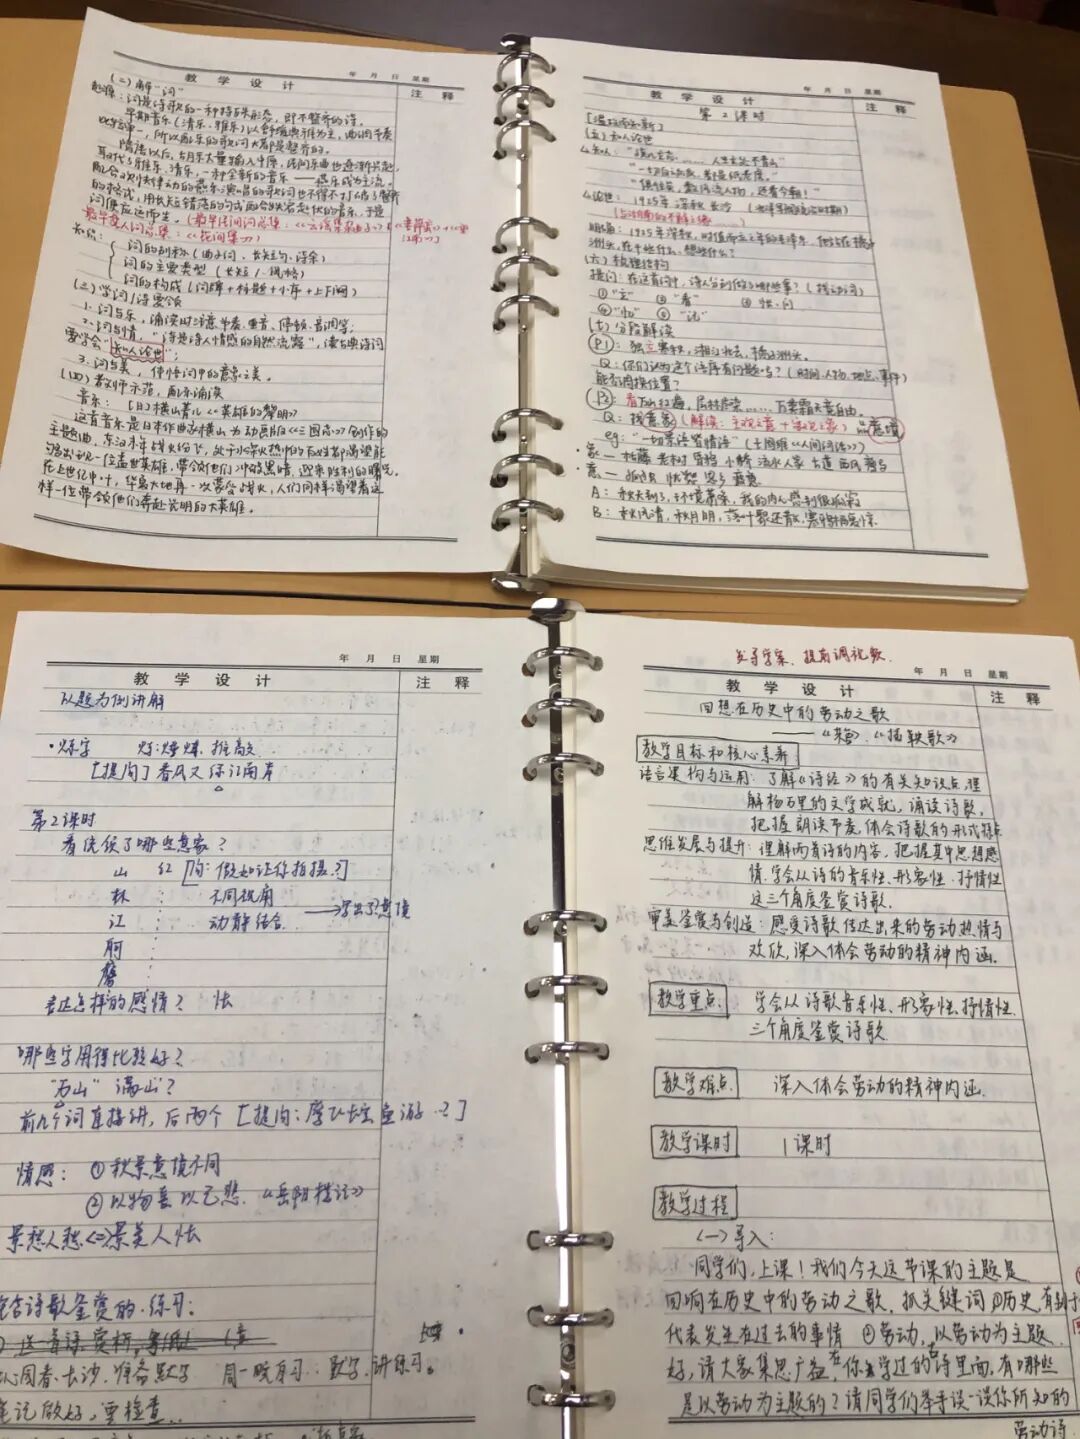 年 月 日 星期
教 学 设 计 注 释
(二)解"词"
起源:词是诗歌的一种特殊形态,即不整齐的诗。
早期音乐(清乐、雅乐)以舒缓典雅为主,曲调节奏
比较单一,所以配乐的歌词大都是整齐的。
隋唐以后,
新一种全新的音乐——燕乐成为主流。
词便应运而生。(最早民间词总集:《云谣集杂曲子》)
最早文人词总集:《花间集》)
知识:
词的别称(曲子词、长短句、诗余)
词的主要类型(长短/风格)
词的构成(词牌+标题+小序+上下阕)
(三)学词/诗要领
1.词与乐,诵读时注意节奏、重音、停顿、音调等;
2.词与情,"诗是诗人情感的自然流露",读古典诗词
要学会"知人论世";
3.词与美,体悟词中的意象之美。
(四)教师示范,配乐诵读
音乐:[日]横山菁儿《英雄的黎明》
这首音乐是日本作曲家横山为动画版《三国志》创作的
主题曲。东汉末年战火纷飞,处于水深火热中的百姓都渴望能
涌出现一位盖世英雄,带领他们冲破黑暗,迎来胜利的曙光。
在上世纪中叶,华夏大地再一次蒙受战火,人们同样渴望着这
样一位带领他们奔赴光明的大英雄。
年 月 日 星期
教 学 设 计 注 释
第 2 课时
[温故而知新]
(五)知人论世
"俱往矣,数风流人物,还看今朝!"
论世:1925年 深秋 长沙
明确:1925年深秋,时值而立之年的毛泽东,他站在橘子
洲头,在干些什么、想些什么?
(六)梳理结构
提问:在这首词中,诗人分别做了哪些事?(找动词)
①"立" ②"看" ③ 怅·问
④"忆" ⑤"记"
(七)分段解读
P1:独立寒秋,湘江北去,橘子洲头。
Q:你们认为这个语序有问题吗?(时间、人物、地点、事件)
能否调换位置?
P2:看万山红遍,层林尽染……万类霜天竞自由。
Q:找意象(解读:主观之意+客观之象)品意境
eg:"一切景语皆情语"(王国维《人间词话》)
象— 枯藤 老树 昏鸦 小桥 流水人家 古道 西风 瘦马
A:秋天到了,环境萧条,我的内心感到很孤寂
B:秋风清,秋月明,落叶聚还散,寒鸦栖复惊
年 月 日 星期
教 学 设 计 注 释
以题为例讲解
·炼字 炼:锤炼、推敲
[提问]春风又绿江南岸
第2课时
看统领了哪些意象?
山 红 [问:假如让你拍摄?]
林 不同视角
江 动静结合 →写出了意境
舸
鹰
表达怎样的感情? 怅
哪些字用得比较好?
"万山" 满山"?
前几个词直接讲,后两个[提问:
情感:①秋景意境不同
②以物喜 以己悲.《岳阳楼记》
景愁人愁<=>景美人怅
诗歌鉴赏的练习:
沁园春·长沙.准备默写 周一晚自习:默写.讲练习。
笔记做好,要检查..
发导学案、提前调视频.
年 月 日 星期
教 学 设 计 注 释
回想在历史中的劳动之歌
——《芣苢》、《插秧歌》
教学目标和核心素养
语言建构与运用:了解《诗经》的有关知识点,理
解杨万里的文学成就,诵读诗歌,
把握朗读节奏,体会诗歌的形式特点
思维发展与提升:理解两首诗的内容,把握其中思想感
情,学会从诗的音乐性、形象性、抒情性
这三个角度鉴赏诗歌.
审美鉴赏与创造:感受诗歌传达出来的劳动热情与
欢欣,深入体会劳动的精神内涵.
教学重点 学会从诗歌音乐性、形象性、抒情性
三个角度鉴赏诗歌
教学难点 深入体会劳动的精神内涵.
教学课时 1课时
教学过程
(一)导入:
同学们,上课!我们今天这节课的主题是
回响在历史中的劳动之歌.抓关键词①历史,有
代表发生在过去的事情 ②劳动,以劳动为主题.
好,请大家集思广益,在你学过的古诗里面,有哪些
是以劳动为主题的?请同学们举手谈一谈你所知的
劳动诗.